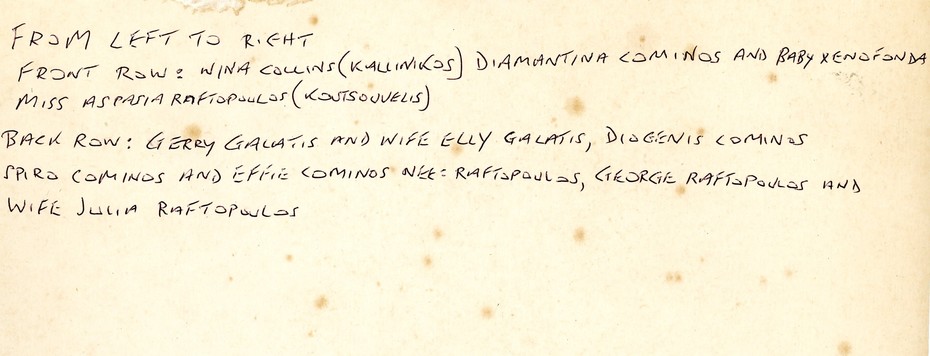 FROM LEFT TO RIGHT
FRONT ROW: WINA COLLINS (KALLINIKOS) DIAMANTINA COMINOS AND BABY XENOFONDA
MISS ASPASIA RAFTOPOULOS (KOUTSOUVELIS)
BACK ROW: GERRY GALATIS AND WIFE ELLY GALATIS, DIOGENIS COMINOS
SPIRO COMINOS AND EFFIE COMINOS NEE: RAFTOPOULOS, GEORGE RAFTOPOULOS AND
WIFE JULIA RAFTOPOULOS